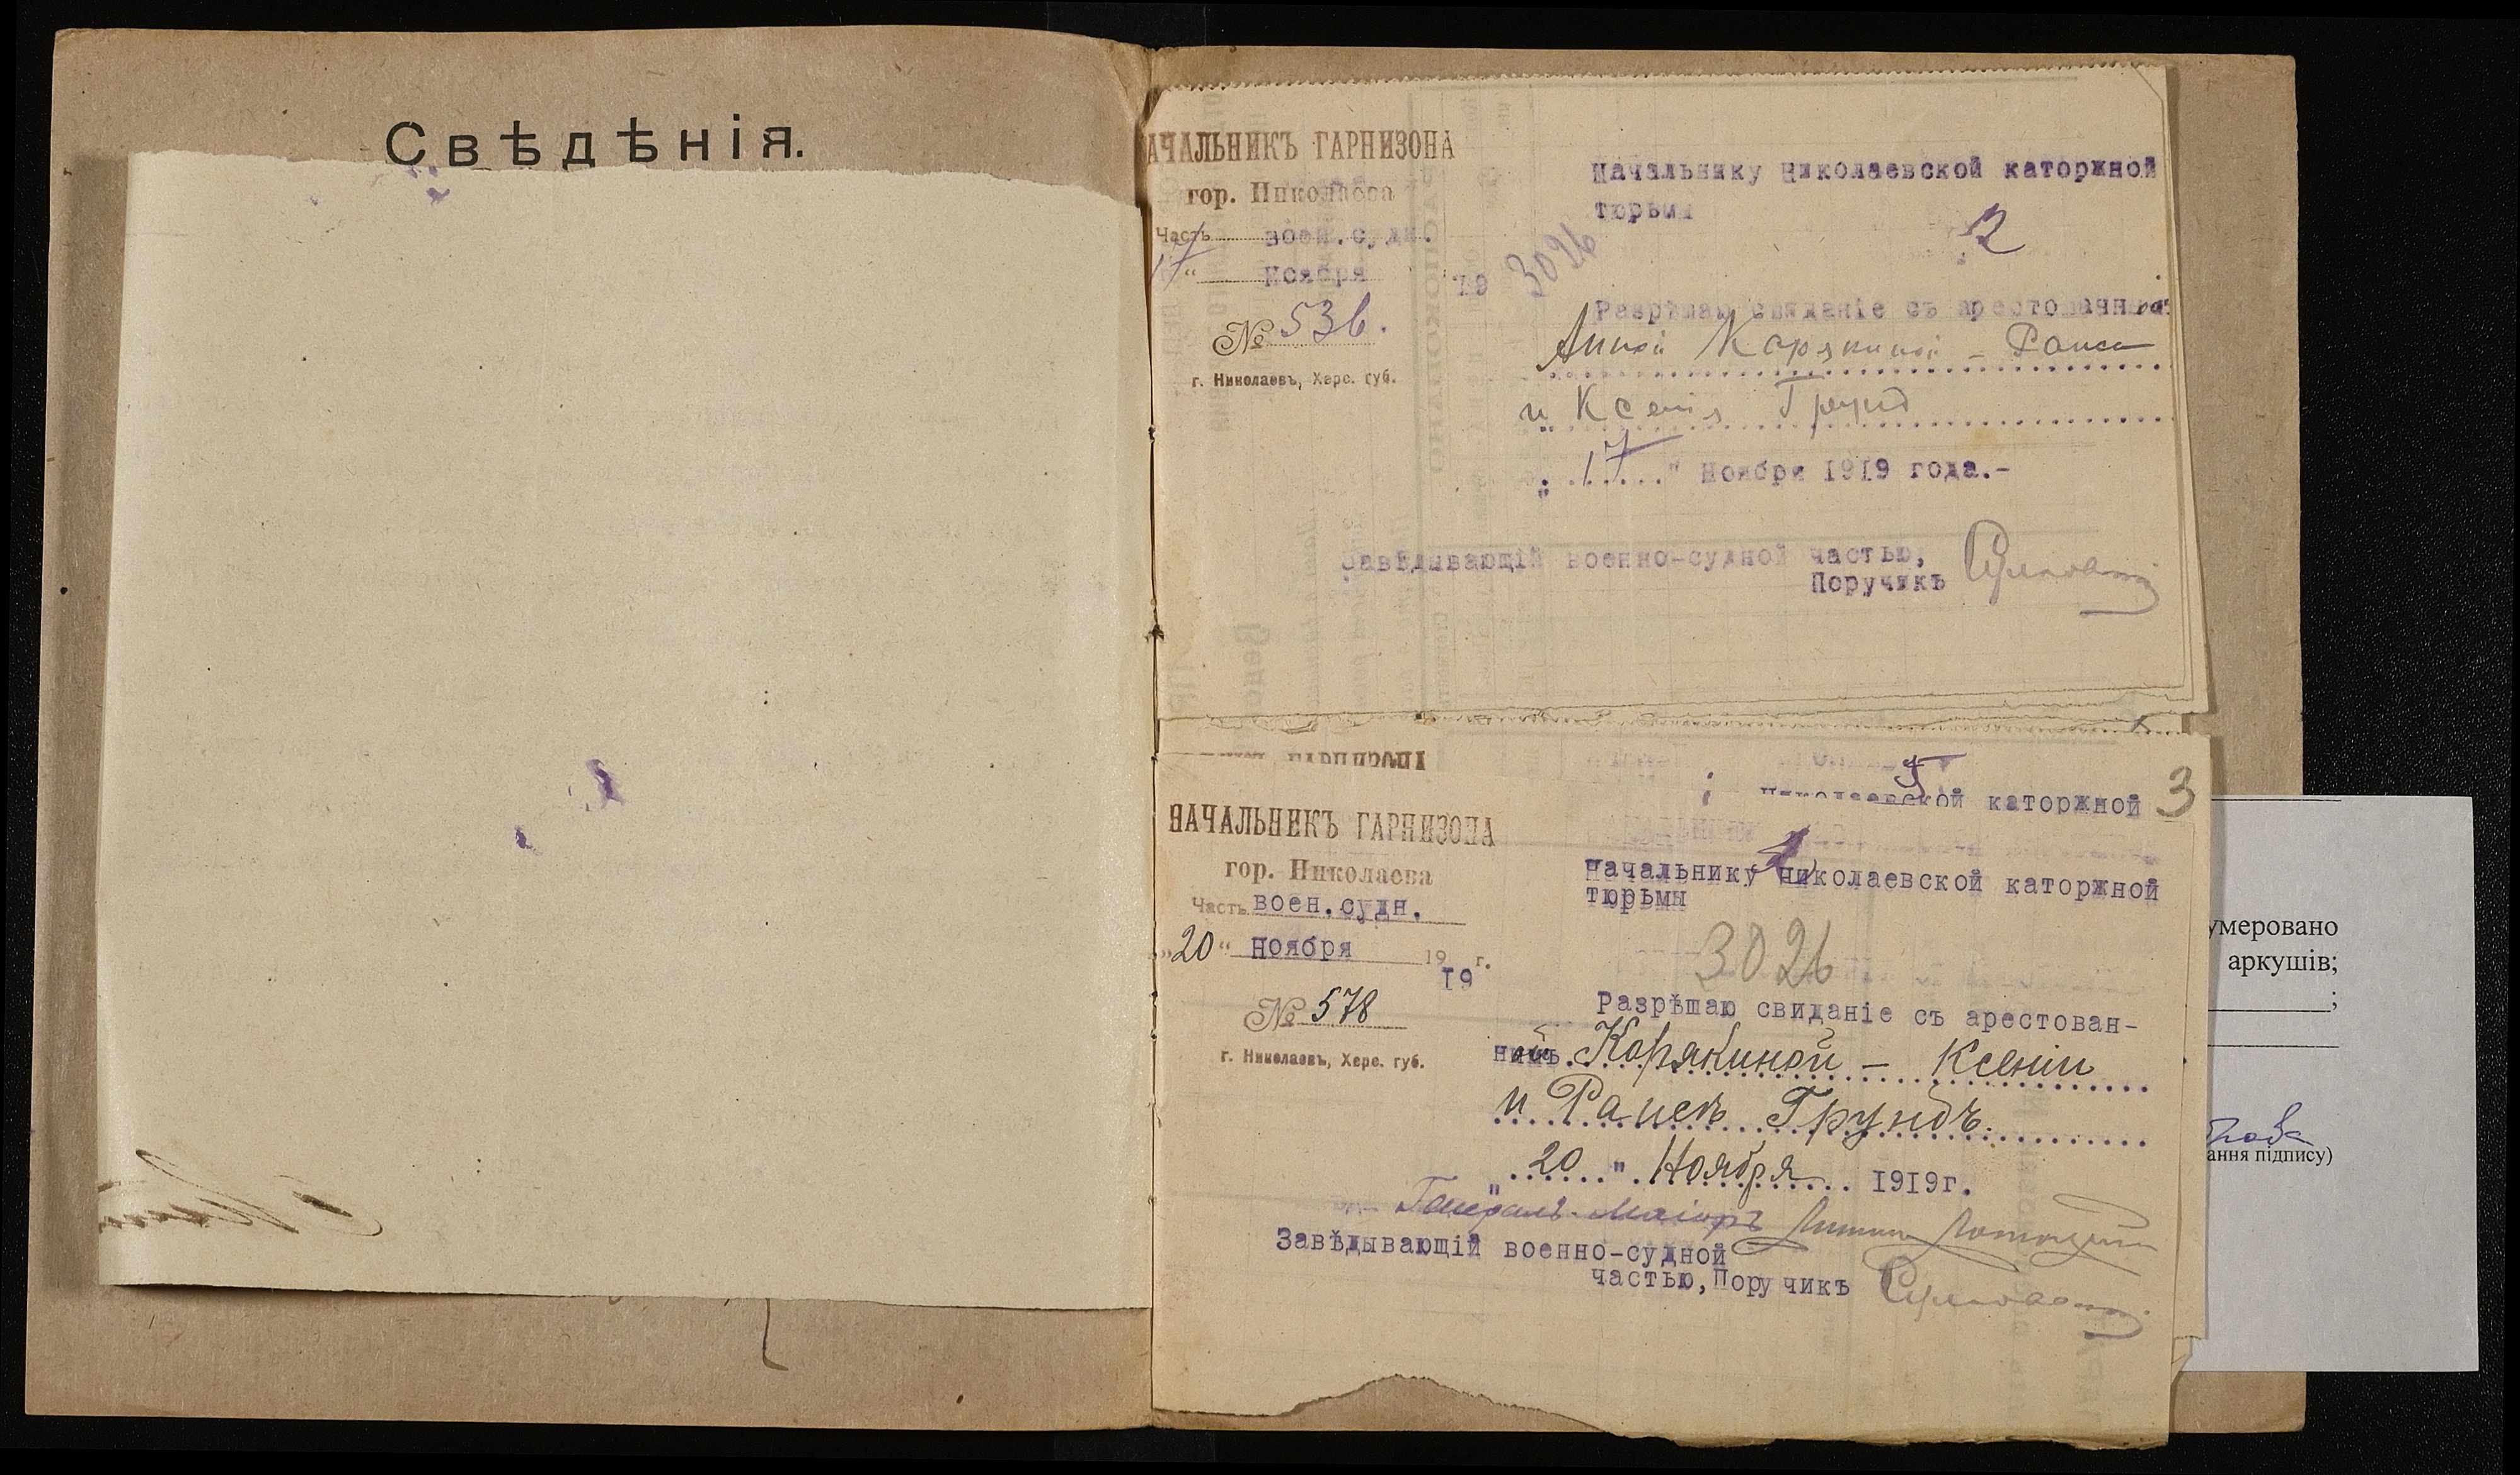 Свѣдѣнія.
АЧАЛЬНИКЪ ГАРНИЗОНА
гор. Николаева
Часть воен.судн.
17 " Ноября 19
№ 536.
г. Николаевъ, Херс. губ.
Начальнику Николаевской каторжной
тюрьмы
2
3026
Разрѣшаю свиданіе съ арестованной
Анной Корякиной – Раиса
и Ксенія Грунд
" 17 " Ноября 1919 года.-
Завѣдывающій военно-судной частью,
Поручикъ
ГАРНИЗОНА
Николаевской каторжной
3
НАЧАЛЬНИКЪ ГАРНИЗОНА
гор. Николаева
Часть воен.судн.
„20“ Ноября 1919 г.
№ 578
г. Николаевъ, Херс. губ.
Начальнику Николаевской каторжной
тюрьмы
3026
Разрѣшаю свиданіе съ арестован-
ной Корякиной – Ксеніи
и Раисѣ Грундъ.
" 20 " Ноября 1919г.
Генералъ-Маіоръ
Завѣдывающій военно-судной
частью, Поручикъ
умеровано
аркушів;
;
ання підпису)